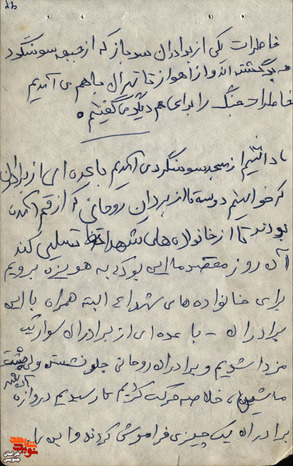 خاطرات یکی از برادران سرباز که از جبهه سوسنگرد
برگشتند و از اهواز تا تهران با هم می آمدیم
خاطرات جنگ را برای هم دیگر می گفتیم ه
داشتیم از مسجد سوسنگرد می آمدیم با عده ای از برادران
که خواستیم دوسه تا از برادران روحانی که از قم آمده
بودند تا از خانواده های شهدا تسلی کند
آن روز مقصد ما این بود که به هویزه برویم
برای خانواده های شهدا البته همراه با این
برادران - با عده ای از برادران سوار یک
مزدا شدیم و برادران روحانی جلو نشستند و
ماشین، خلاصه حرکت کردیم تا رسیدیم دروازه
برادران یک چیزی فراموش کردند و این را